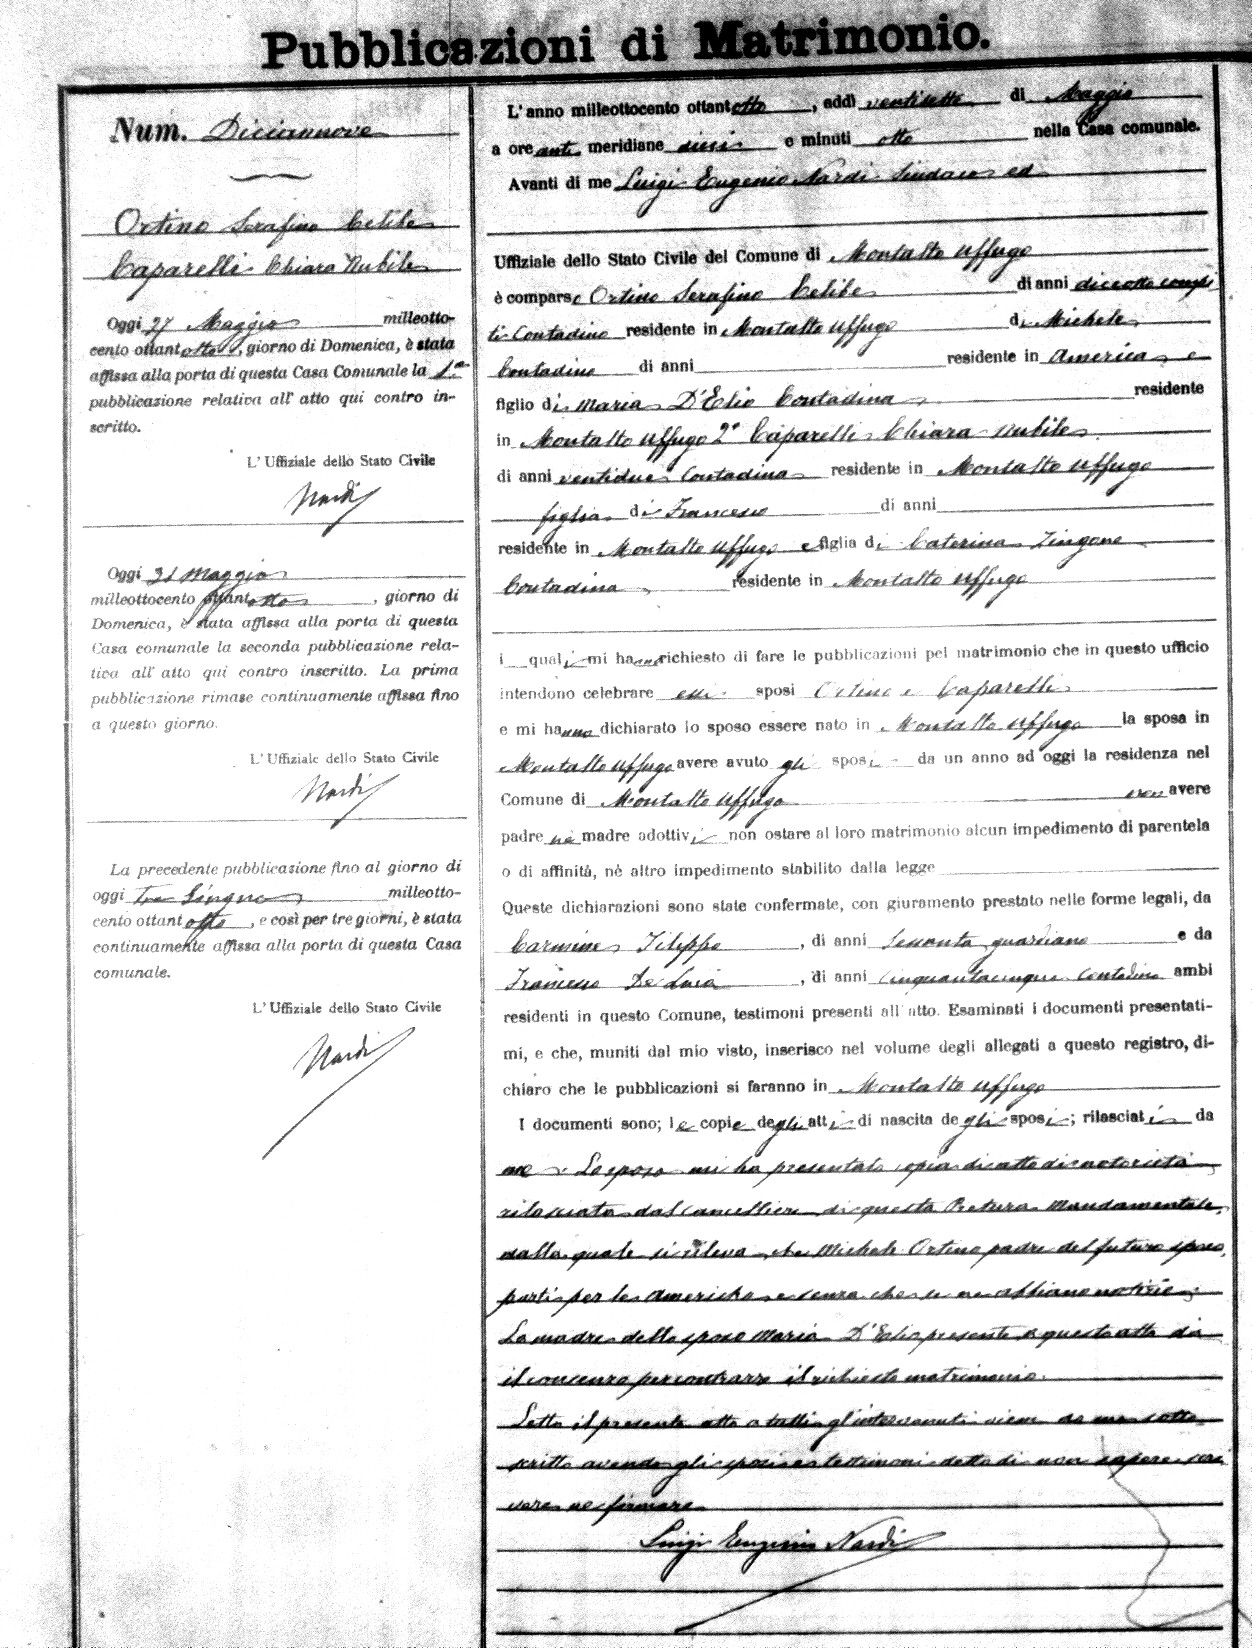 Pubblicazioni di Matrimonio.
Num. Diciannove
Ortino Serafino Celibe
Caparelli Chiara Nubile
Oggi 27 Maggio milleotto-
cento ottantotto, giorno di Domenica, è stata
affissa alla porta di questa Casa Comunale la 1.a
pubblicazione relativa all' atto qui contro in-
scritto.
L' Uffiziale dello Stato Civile
Nardi
Oggi 31 Maggio
milleottocento ottantotto, giorno di
Domenica, è stata affissa alla porta di questa
Casa comunale la seconda pubblicazione rela-
tiva all' atto qui contro inscritto. La prima
pubblicazione rimase continuamente affissa fino
a questo giorno.
L' Uffiziale dello Stato Civile
Nardi
La precedente pubblicazione fino al giorno di
oggi tre Giugno milleotto-
cento ottantotto, e così per tre giorni, è stata
continuamente affissa alla porta di questa Casa
comunale.
L' Uffiziale dello Stato Civile
Nardi
L' anno milleottocento ottantotto, addì ventisette di Maggio
a ore anti meridiane dieci e minuti otto nella Casa comunale.
Avanti di me Luigi Eugenio Nardi Sindaco ed
Uffiziale dello Stato Civile del Comune di Montalto Uffugo
è comparso Ortino Serafino Celibe di anni diciotto compi
ti Contadino residente in Montalto Uffugo di Michele
Contadino di anni residente in America e
figlio di Maria D'Elio Contadina residente
in Montalto Uffugo 2° Caparelli Chiara nubile
di anni ventidue Contadina residente in Montalto Uffugo
figlia di Francesco di anni
residente in Montalto Uffugo e figlia di Caterina Zingone
Contadina residente in Montalto Uffugo
i quali mi hanno richiesto di fare le pubblicazioni pel matrimonio che in questo ufficio
intendono celebrare essi sposi Ortino e Caparelli
e mi hanno dichiarato lo sposo essere nato in Montalto Uffugo la sposa in
Montalto Uffugo avere avuto gli sposi da un anno ad oggi la residenza nel
Comune di Montalto Uffugo non avere
padre nè madre adottivi non ostare al loro matrimonio alcun impedimento di parentela
o di affinità, nè altro impedimento stabilito dalla legge
Queste dichiarazioni sono state confermate, con giuramento prestato nelle forme legali, da
Carmine Filippo, di anni sessanta guardiano e da
Francesco De Luca, di anni cinquantacinque contadino ambi
residenti in questo Comune, testimoni presenti all' atto. Esaminati i documenti presentati-
mi, e che, muniti dal mio visto, inserisco nel volume degli allegati a questo registro, di-
chiaro che le pubblicazioni si faranno in Montalto Uffugo
I documenti sono; le copie degli atti di nascita degli sposi; rilasciati da
me. Lo sposo mi ha presentato copia di atto di notorietà
rilasciato dal Cancelliere di questa Pretura Mandamentale,
dalla quale si rileva che Michele Ortino padre del futuro sposo,
partì per le Americhe e senza che se ne abbiano notizie.
La madre dello sposo Maria D'Elio presente a questo atto dà
il consenso per contrarre il richiesto matrimonio.
Letto il presente atto a tutti gl'intervenuti viene da me sotto
scritto avendo gli sposi e testimoni detto di non sapere scri
vere ne firmare
Luigi Eugenio Nardi